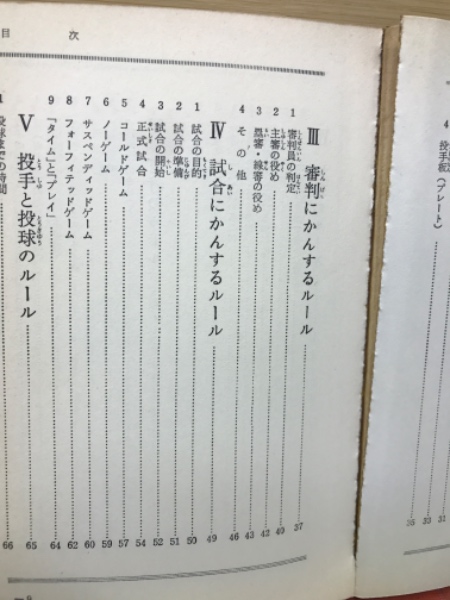 4 投手板（プレート）
32
33
35
目 次
Ⅲ 審判にかんするルール 37
1 審判員の判定 40
2 主審の役め 42
3 塁審・線審の役め 43
4 その他 46
Ⅳ 試合にかんするルール 49
1 試合の目的 50
2 試合の準備 51
3 試合の開始 52
4 正式試合 54
5 コールドゲーム 57
6 ノーゲーム 59
7 サスペンディッドゲーム 60
8 フォーフィテッドゲーム 62
9 「タイム」と「プレイ」 64
Ⅴ 投手と投球のルール 65
1 投球までの時間 66